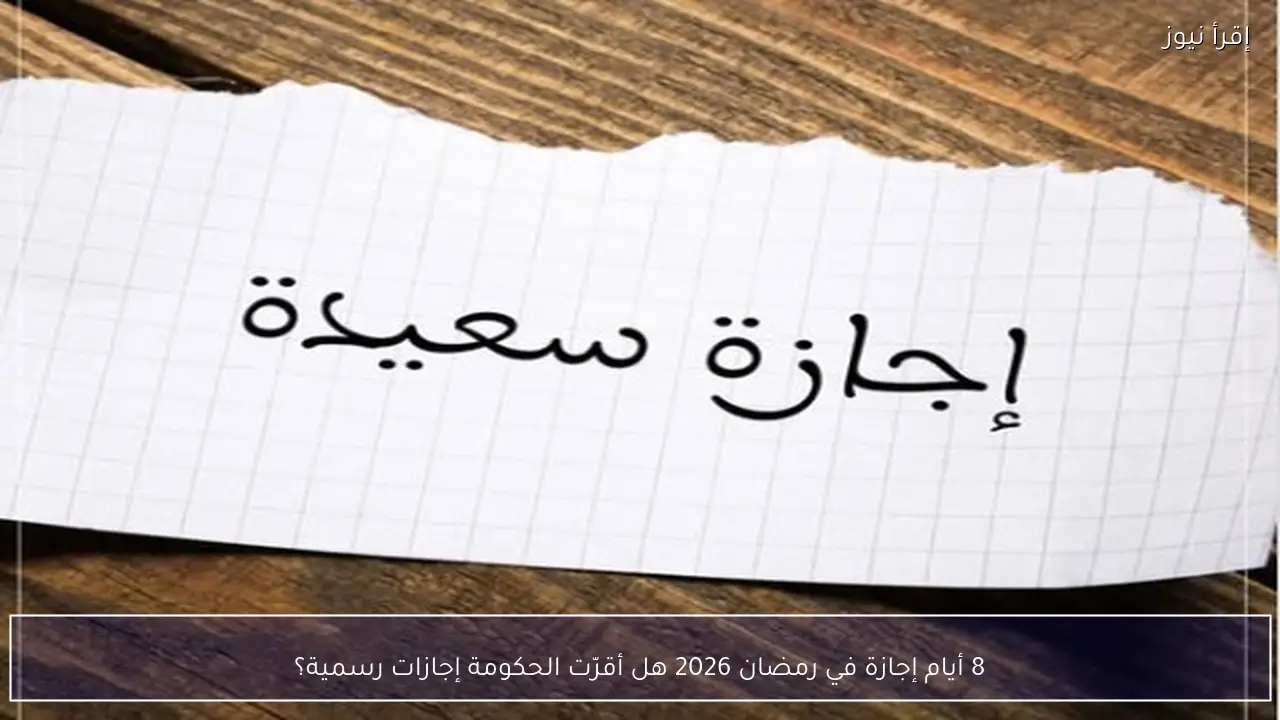 إقرأ نيوز
إجازة سعيدة
8 أيام إجازة في رمضان 2026 هل أقرّت الحكومة إجازات رسمية؟